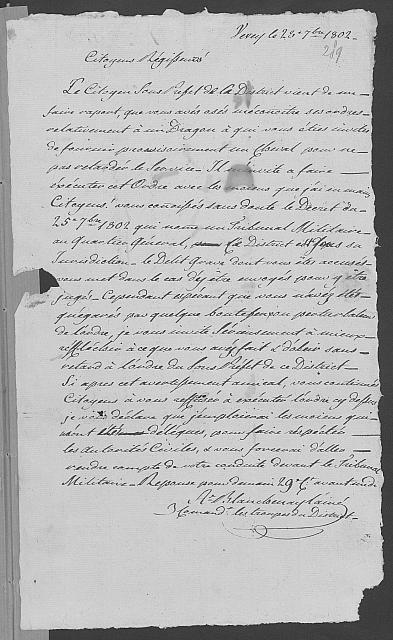 Vevey le 28e 7bre 1802.
219
Citoyens Régisseurs
Le Citoyen Sous Prefet de la District vient de me
faire raport, que vous avés osés méconoitre ses ordres
relativement à un Dragon à qui vous êtres invités
de fournir provisoirement un Cheval pour ne
pas retarder le Service. Il invite a faire
éxécuter cet Ordre avec les moiens que j'ai en main
Citoyens, vous conoissés sans doute le Decret du
25e 7bre 1802 qui nome un Tribunal Militaire
au Quartier Général, Ce District est dans sa
Jurisdiction. Le Delit Grave dont vous êtes accusés
vous met dans le cas d'y être envoyés pour y être
jugés. Cependant espérant que vous n'avés êtés
égarés par quelque boutefeux perturbateur
de l'ordre, je vous invite Sérieusement à mieux
refflechir à ce que vous avés fait & d'obeir sans
retard à l'ordre du Sous Prefet de ce District.
Si après cet avertissement amical, vous continués
Citoyens à vous reffuser à éxécuter l'ordre cy dessus
je vous déclare que j'emploierai les moiens qui
me sont délégués, pour faire respecter
les Autorités Civiles, & vous forcerai d'aller
rendre compte de votre conduite devant le Tribunal
Militaire. Reponse pour demain 29e Ct avant midi
Blanchenay l'ainé
Comandt les troupes du District